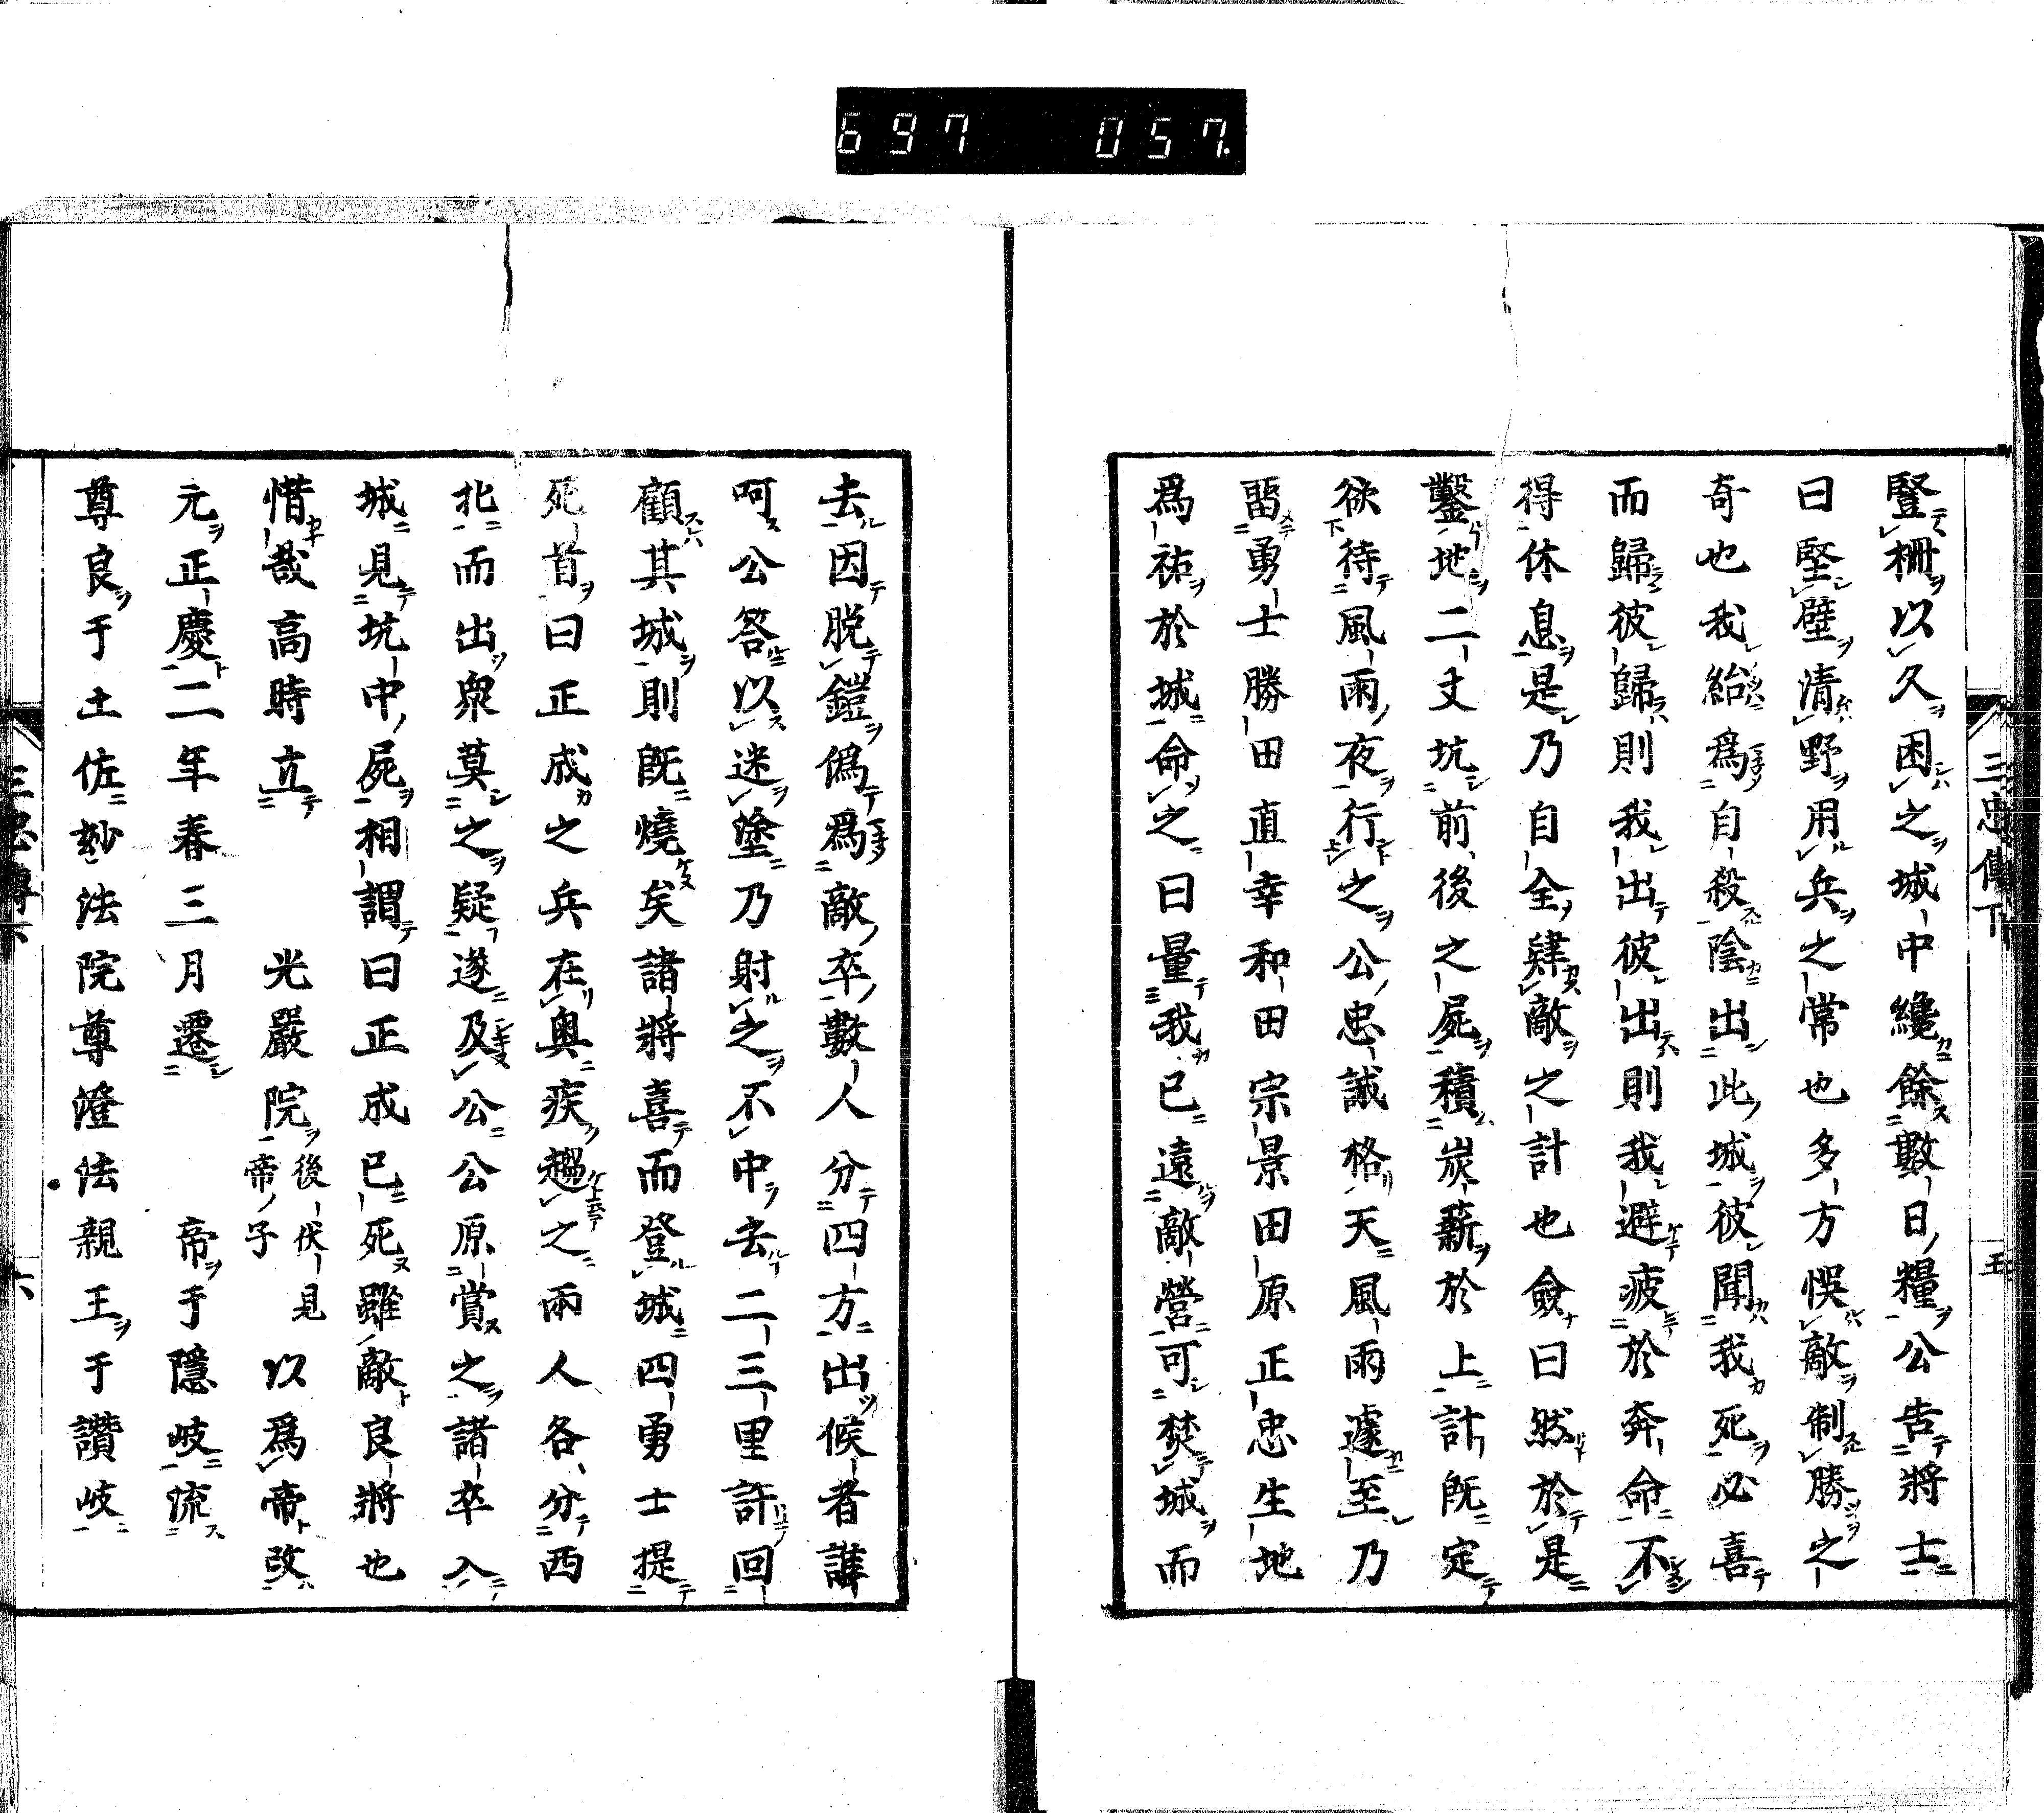 697 057.
三忠傳下
五
豎柵以久困之城中纔餘數日糧公告將士
曰堅壁清野用兵之常也多方悞敵制勝之
奇也我紿爲自殺陰出此城彼聞我死必喜
而歸彼歸則我出彼出則我避疲於奔命不
得休息是乃自全肄敵之計也僉曰然於是
鑿地二丈坑前後之屍積炭薪於上計既定
欲待風雨夜行之公忠誠格天風雨遽至乃
畱勇士勝田直幸和田宗景田原正忠生地
爲祐於城命之曰量我已遠敵營可焚城而
去因脱鎧僞爲敵卒數人分四方出候者誰
呵公答以迷塗乃射之不中去二三里許回
顧其城則既燒矣諸將喜而登城四勇士提
死首曰正成之兵在奥疾趨之兩人各分西
北而出衆莫之疑遂及公公原賞之諸卒入
城見坑中屍相謂曰正成已死雖敵良將也
惜哉高時立 光嚴院後伏見帝子以爲帝改
元正慶二年春三月遷 帝于隱岐流
尊良于土佐玅法院尊澄法親王于讚岐
三忠傳下
六